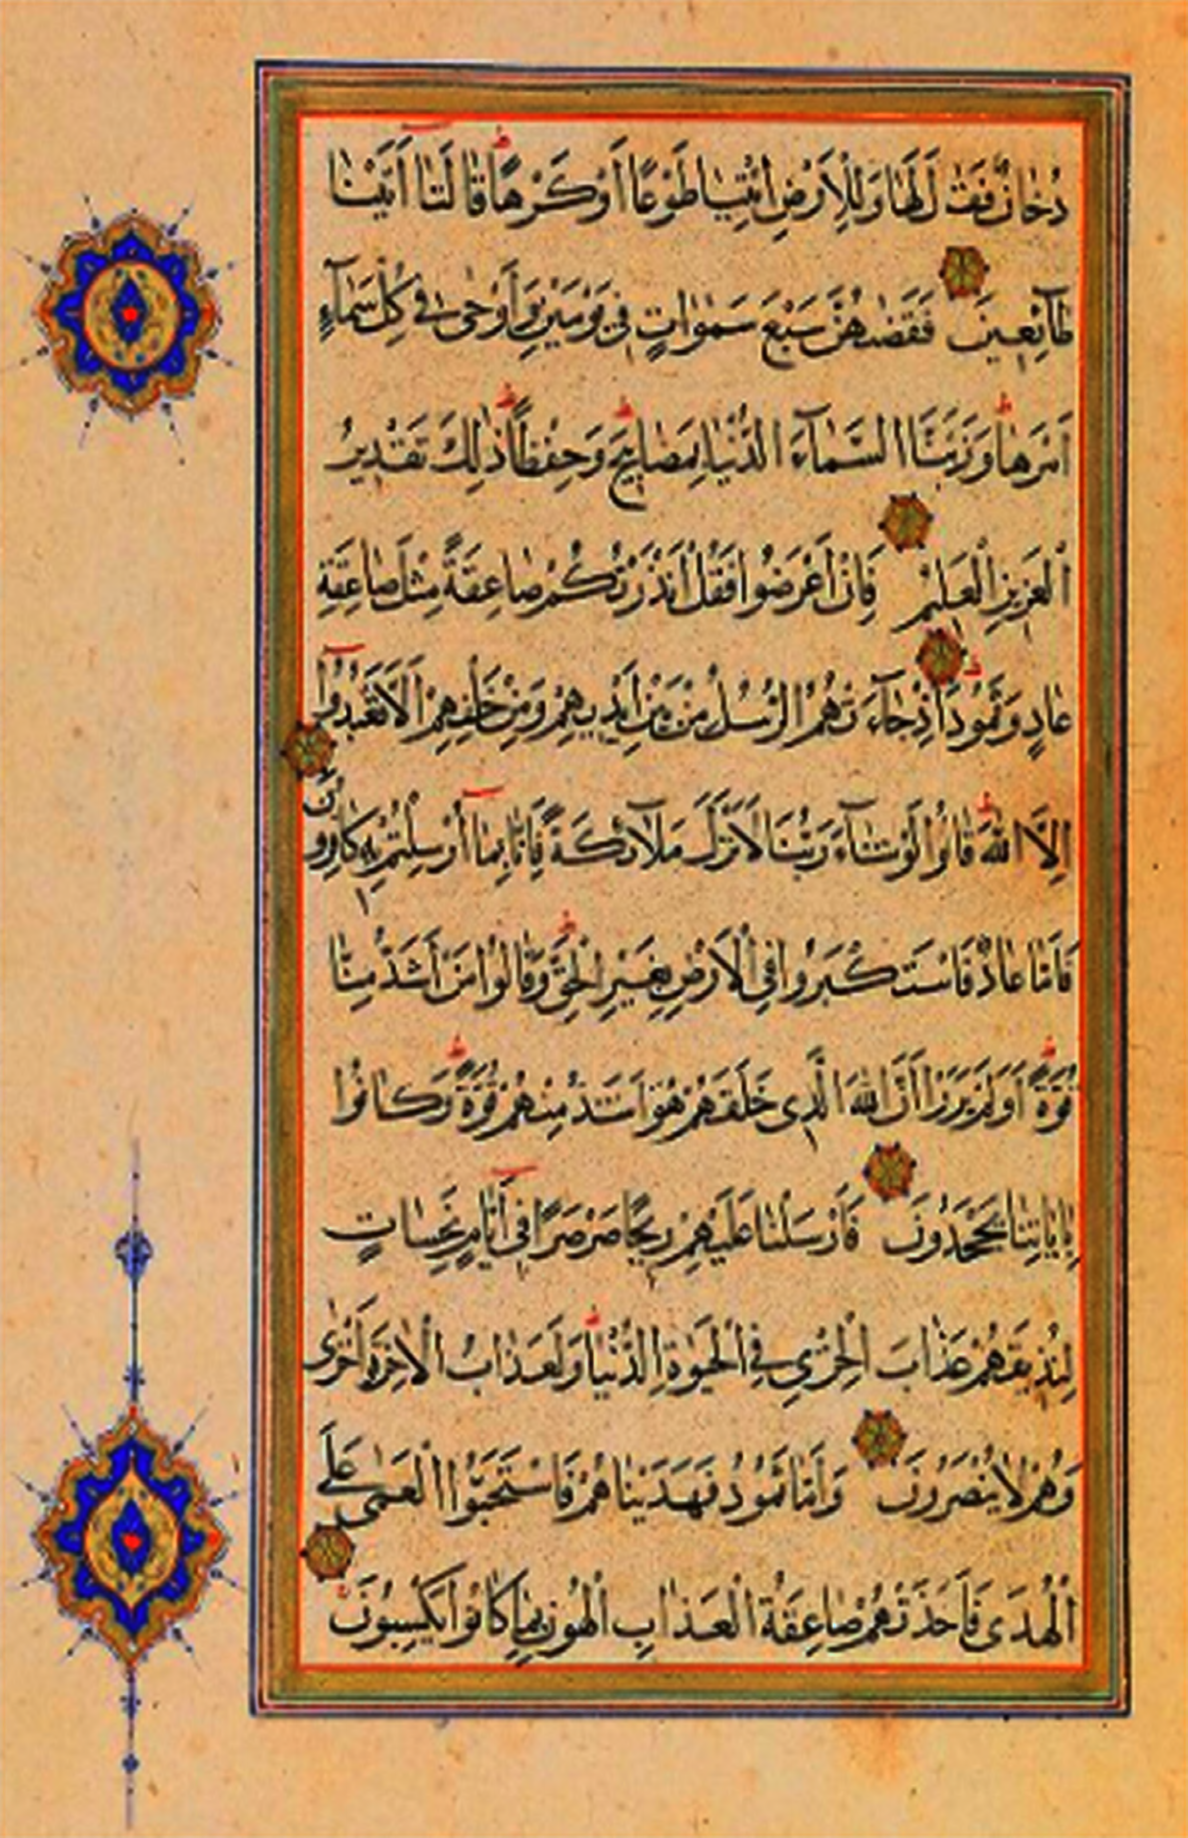 دُخَانٌ فَقَالَ لَهَا وَلِلْاَرْضِ ائْتِيَا طَوْعًا اَوْ كَرْهًا قَالَتَا اَتَيْنَا
طَآئِعِينَ فَقَضٰهُنَّ سَبْعَ سَمٰوَاتٍ فِي يَوْمَيْنِ وَاَوْحٰى فِي كُلِّ سَمَآءٍ
اَمْرَهَا وَزَيَّنَّا السَّمَآءَ الدُّنْيَا بِمَصَابِيحَ وَحِفْظًا ذٰلِكَ تَقْدِيرُ
الْعَزِيزِ الْعَلِيمِ فَاِنْ اَعْرَضُوا فَقُلْ اَنْذَرْتُكُمْ صَاعِقَةً مِثْلَ صَاعِقَةِ
عَادٍ وَثَمُودَ اِذْ جَآءَتْهُمُ الرُّسُلُ مِنْ بَيْنِ اَيْدِيهِمْ وَمِنْ خَلْفِهِمْ اَلَّا تَعْبُدُوا
اِلَّا اللّٰهَ قَالُوا لَوْ شَآءَ رَبُّنَا لَاَنْزَلَ مَلَآئِكَةً فَاِنَّا بِمَا اُرْسِلْتُمْ بِهِ كَافِرُونَ
فَاَمَّا عَادٌ فَاسْتَكْبَرُوا فِي الْاَرْضِ بِغَيْرِ الْحَقِّ وَقَالُوا مَنْ اَشَدُّ مِنَّا
قُوَّةً اَوَلَمْ يَرَوْا اَنَّ اللّٰهَ الَّذِي خَلَقَهُمْ هُوَ اَشَدُّ مِنْهُمْ قُوَّةً وَكَانُوا
بِاٰيَاتِنَا يَجْحَدُونَ فَاَرْسَلْنَا عَلَيْهِمْ رِيحًا صَرْصَرًا فِي اَيَّامٍ نَحِسَاتٍ
لِنُذِيقَهُمْ عَذَابَ الْخِزْيِ فِي الْحَيٰوةِ الدُّنْيَا وَلَعَذَابُ الْاٰخِرَةِ اَخْزٰى
وَهُمْ لَا يُنْصَرُونَ وَاَمَّا ثَمُودُ فَهَدَيْنَاهُمْ فَاسْتَحَبُّوا الْعَمٰى عَلَى
الْهُدٰى فَاَخَذَتْهُمْ صَاعِقَةُ الْعَذَابِ الْهُونِ بِمَا كَانُوا يَكْسِبُونَ